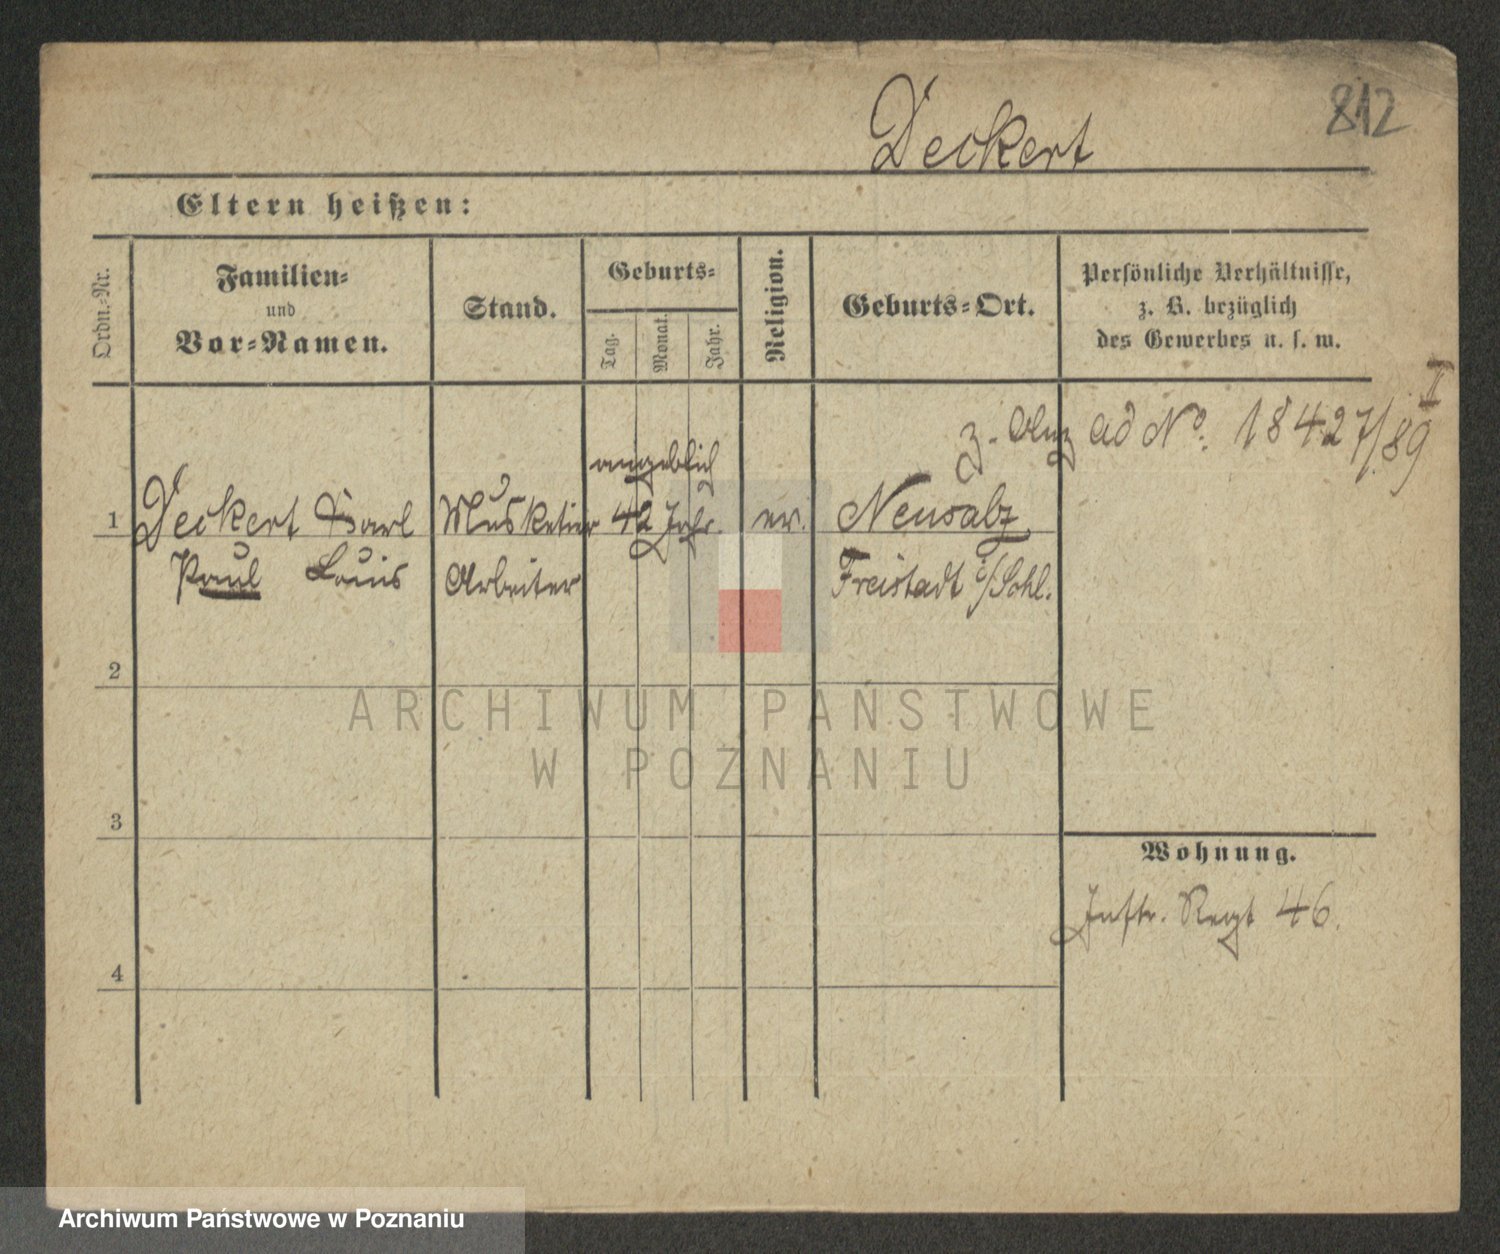 812
Deckert
Eltern heißen:
Ordn.-Nr.
Familien-
und
Vor-Namen.
Stand.
Geburts-
Tag.
Monat.
Jahr.
Religion.
Geburts-Ort.
Persönliche Verhältnisse,
z. B. bezüglich
des Gewerbes u. s. w.
II
z. ad No. 18427/89
angeblich
1
Deckert Carl
Musketier
42 Jahr.
ev.
Neusalz
Paul Louis
Arbeiter
Freistadt i/Schl.
2
3
4
Wohnung.
Inftr. Regt 46.
ARCHIWUM PAŃSTWOWE
W POZNANIU
Archiwum Państwowe w Poznaniu